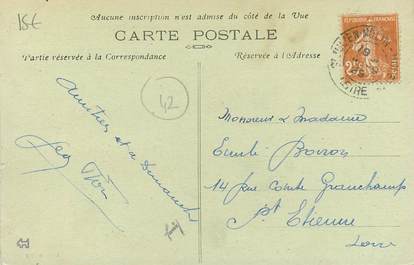 15€
Aucune inscription n'est admise du côté de la Vue
CARTE POSTALE
Partie réservée à la Correspondance
Réservée à l'Adresse
42
Amitiés et à Dimanche
Monsieur & Madame
Emile
14 Rue Comte Grauchamp
St Etienne
Loire